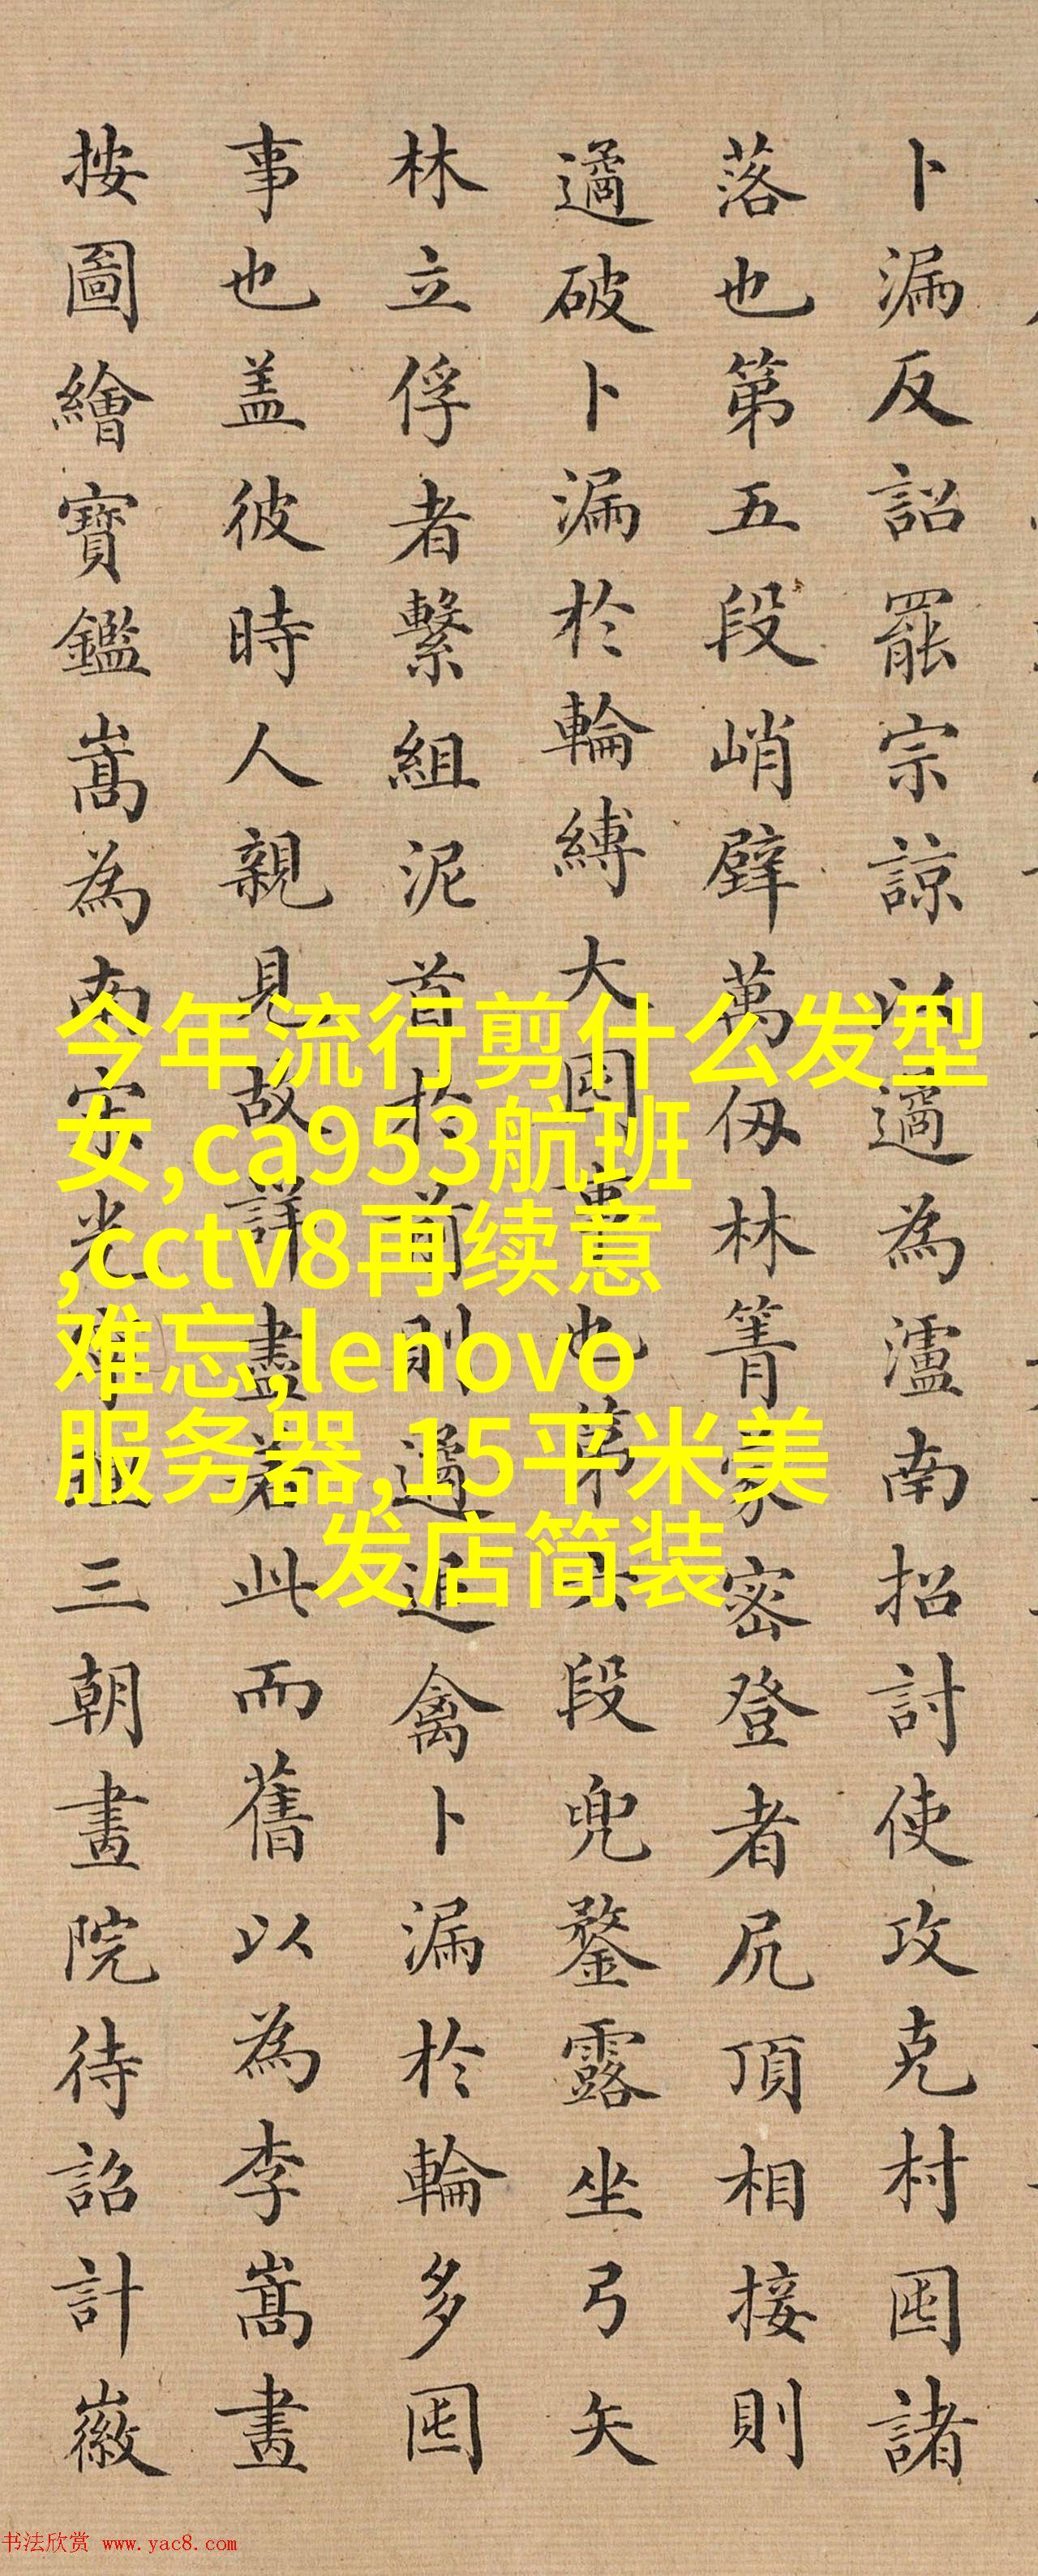 卜漏反詔罷宗諒以遹為瀘南招討使攻克村囤諸
落也第五段峭壁萬仞林箐蒙密登者尻頂相接則
遹破卜漏於輪縛大囤事也第六段兜鍪露坐弓矢
林立俘者繫組泥首於前則遹追禽卜漏於輪多囤
事也盖彼時人親見故詳盡若此而舊以為李嵩畫
按圖繪寶鑑嵩為南宋光寧理三朝畫院待詔計徽
今年流行剪什么发型
女,ca953航班
,cctv8再续意
难忘,lenovo
服务器,15平米美
发店简装
书法欣赏 www.yac8.com